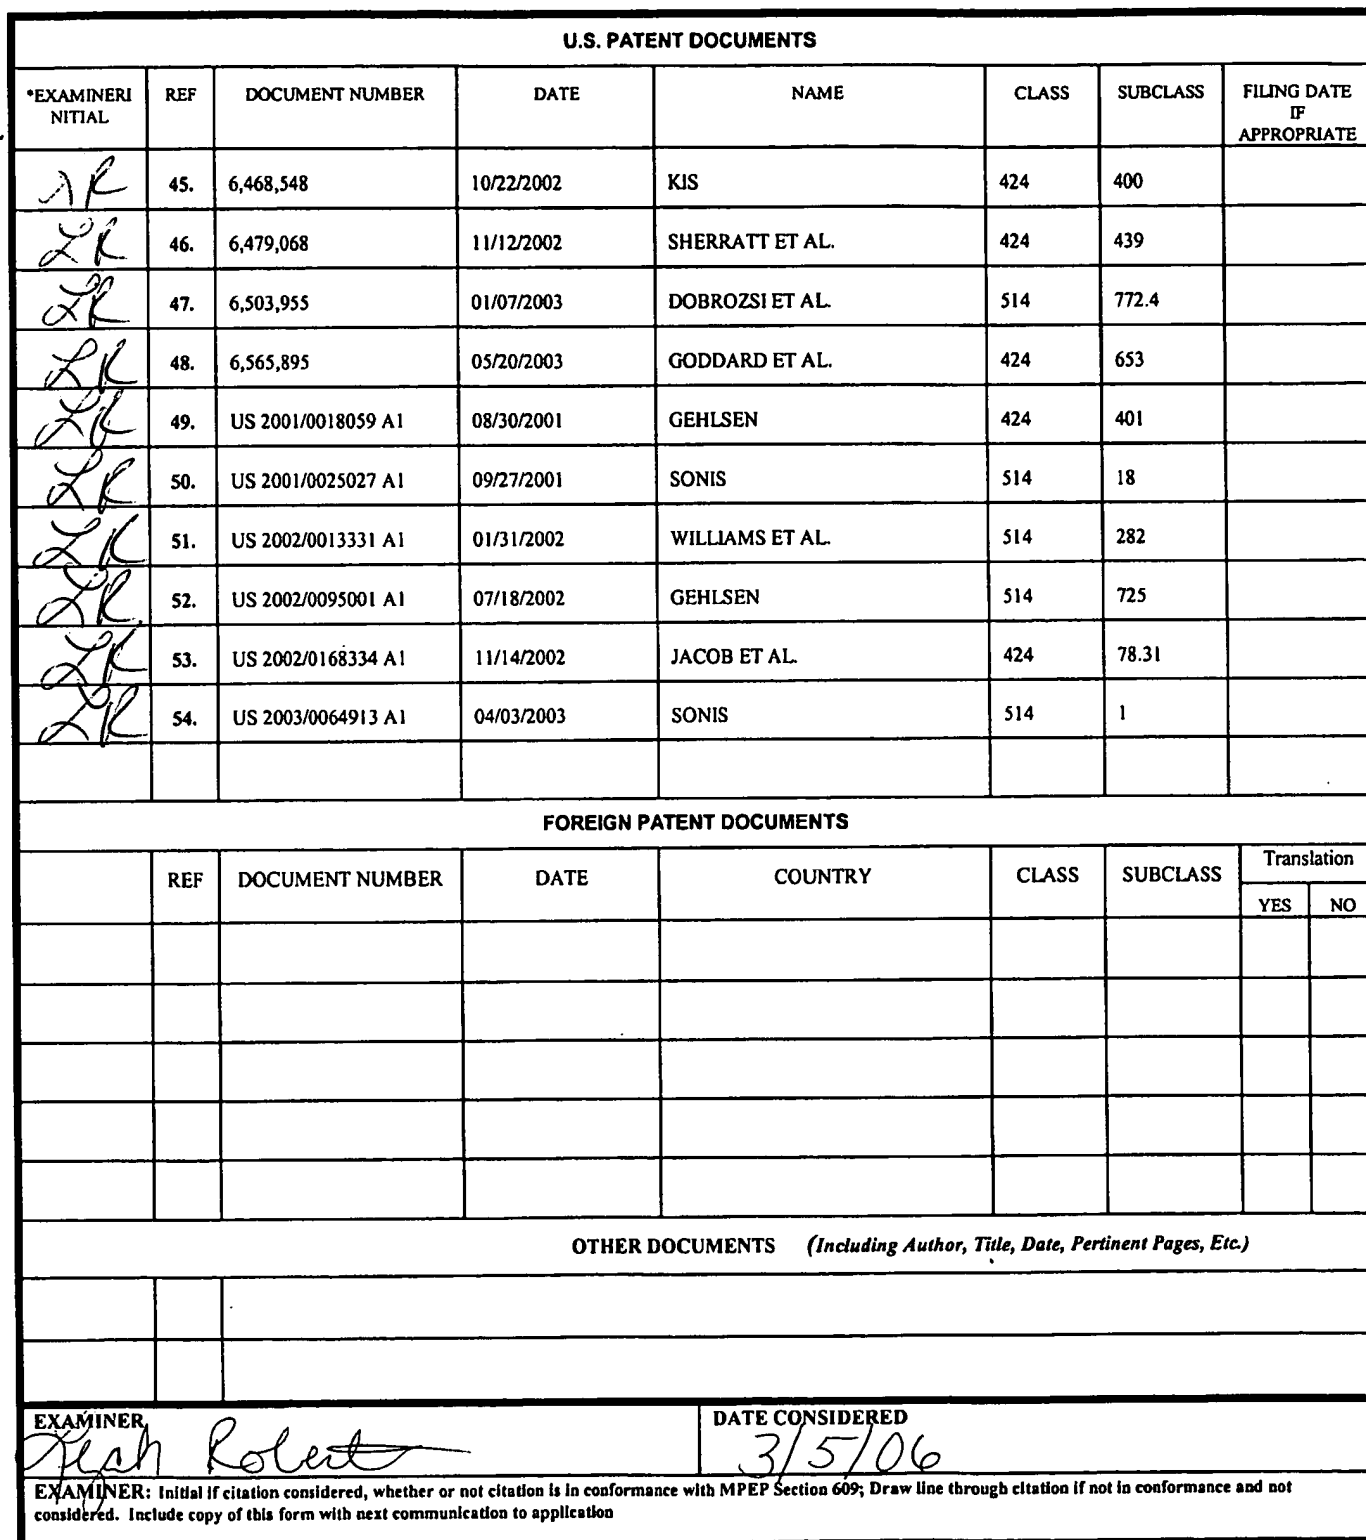 U.S. PATENT DOCUMENTS
*EXAMINERI NITIAL REF DOCUMENT NUMBER DATE NAME CLASS SUBCLASS FILING DATE IF APPROPRIATE
LR 45. 6,468,548 10/22/2002 KIS 424 400
LR 46. 6,479,068 11/12/2002 SHERRATT ET AL. 424 439
LR 47. 6,503,955 01/07/2003 DOBROZSI ET AL. 514 772.4
LR 48. 6,565,895 05/20/2003 GODDARD ET AL. 424 653
LR 49. US 2001/0018059 A1 08/30/2001 GEHLSEN 424 401
LR 50. US 2001/0025027 A1 09/27/2001 SONIS 514 18
LR 51. US 2002/0013331 A1 01/31/2002 WILLIAMS ET AL. 514 282
LR 52. US 2002/0095001 A1 07/18/2002 GEHLSEN 514 725
LR 53. US 2002/0168334 A1 11/14/2002 JACOB ET AL. 424 78.31
LR 54. US 2003/0064913 A1 04/03/2003 SONIS 514 1
FOREIGN PATENT DOCUMENTS
REF DOCUMENT NUMBER DATE COUNTRY CLASS SUBCLASS Translation
YES NO
OTHER DOCUMENTS (Including Author, Title, Date, Pertinent Pages, Etc.)
EXAMINER DATE CONSIDERED
Robert 3/5/06
EXAMINER: Initial if citation considered, whether or not citation is in conformance with MPEP Section 609; Draw line through citation if not in conformance and not
considered. Include copy of this form with next communication to application